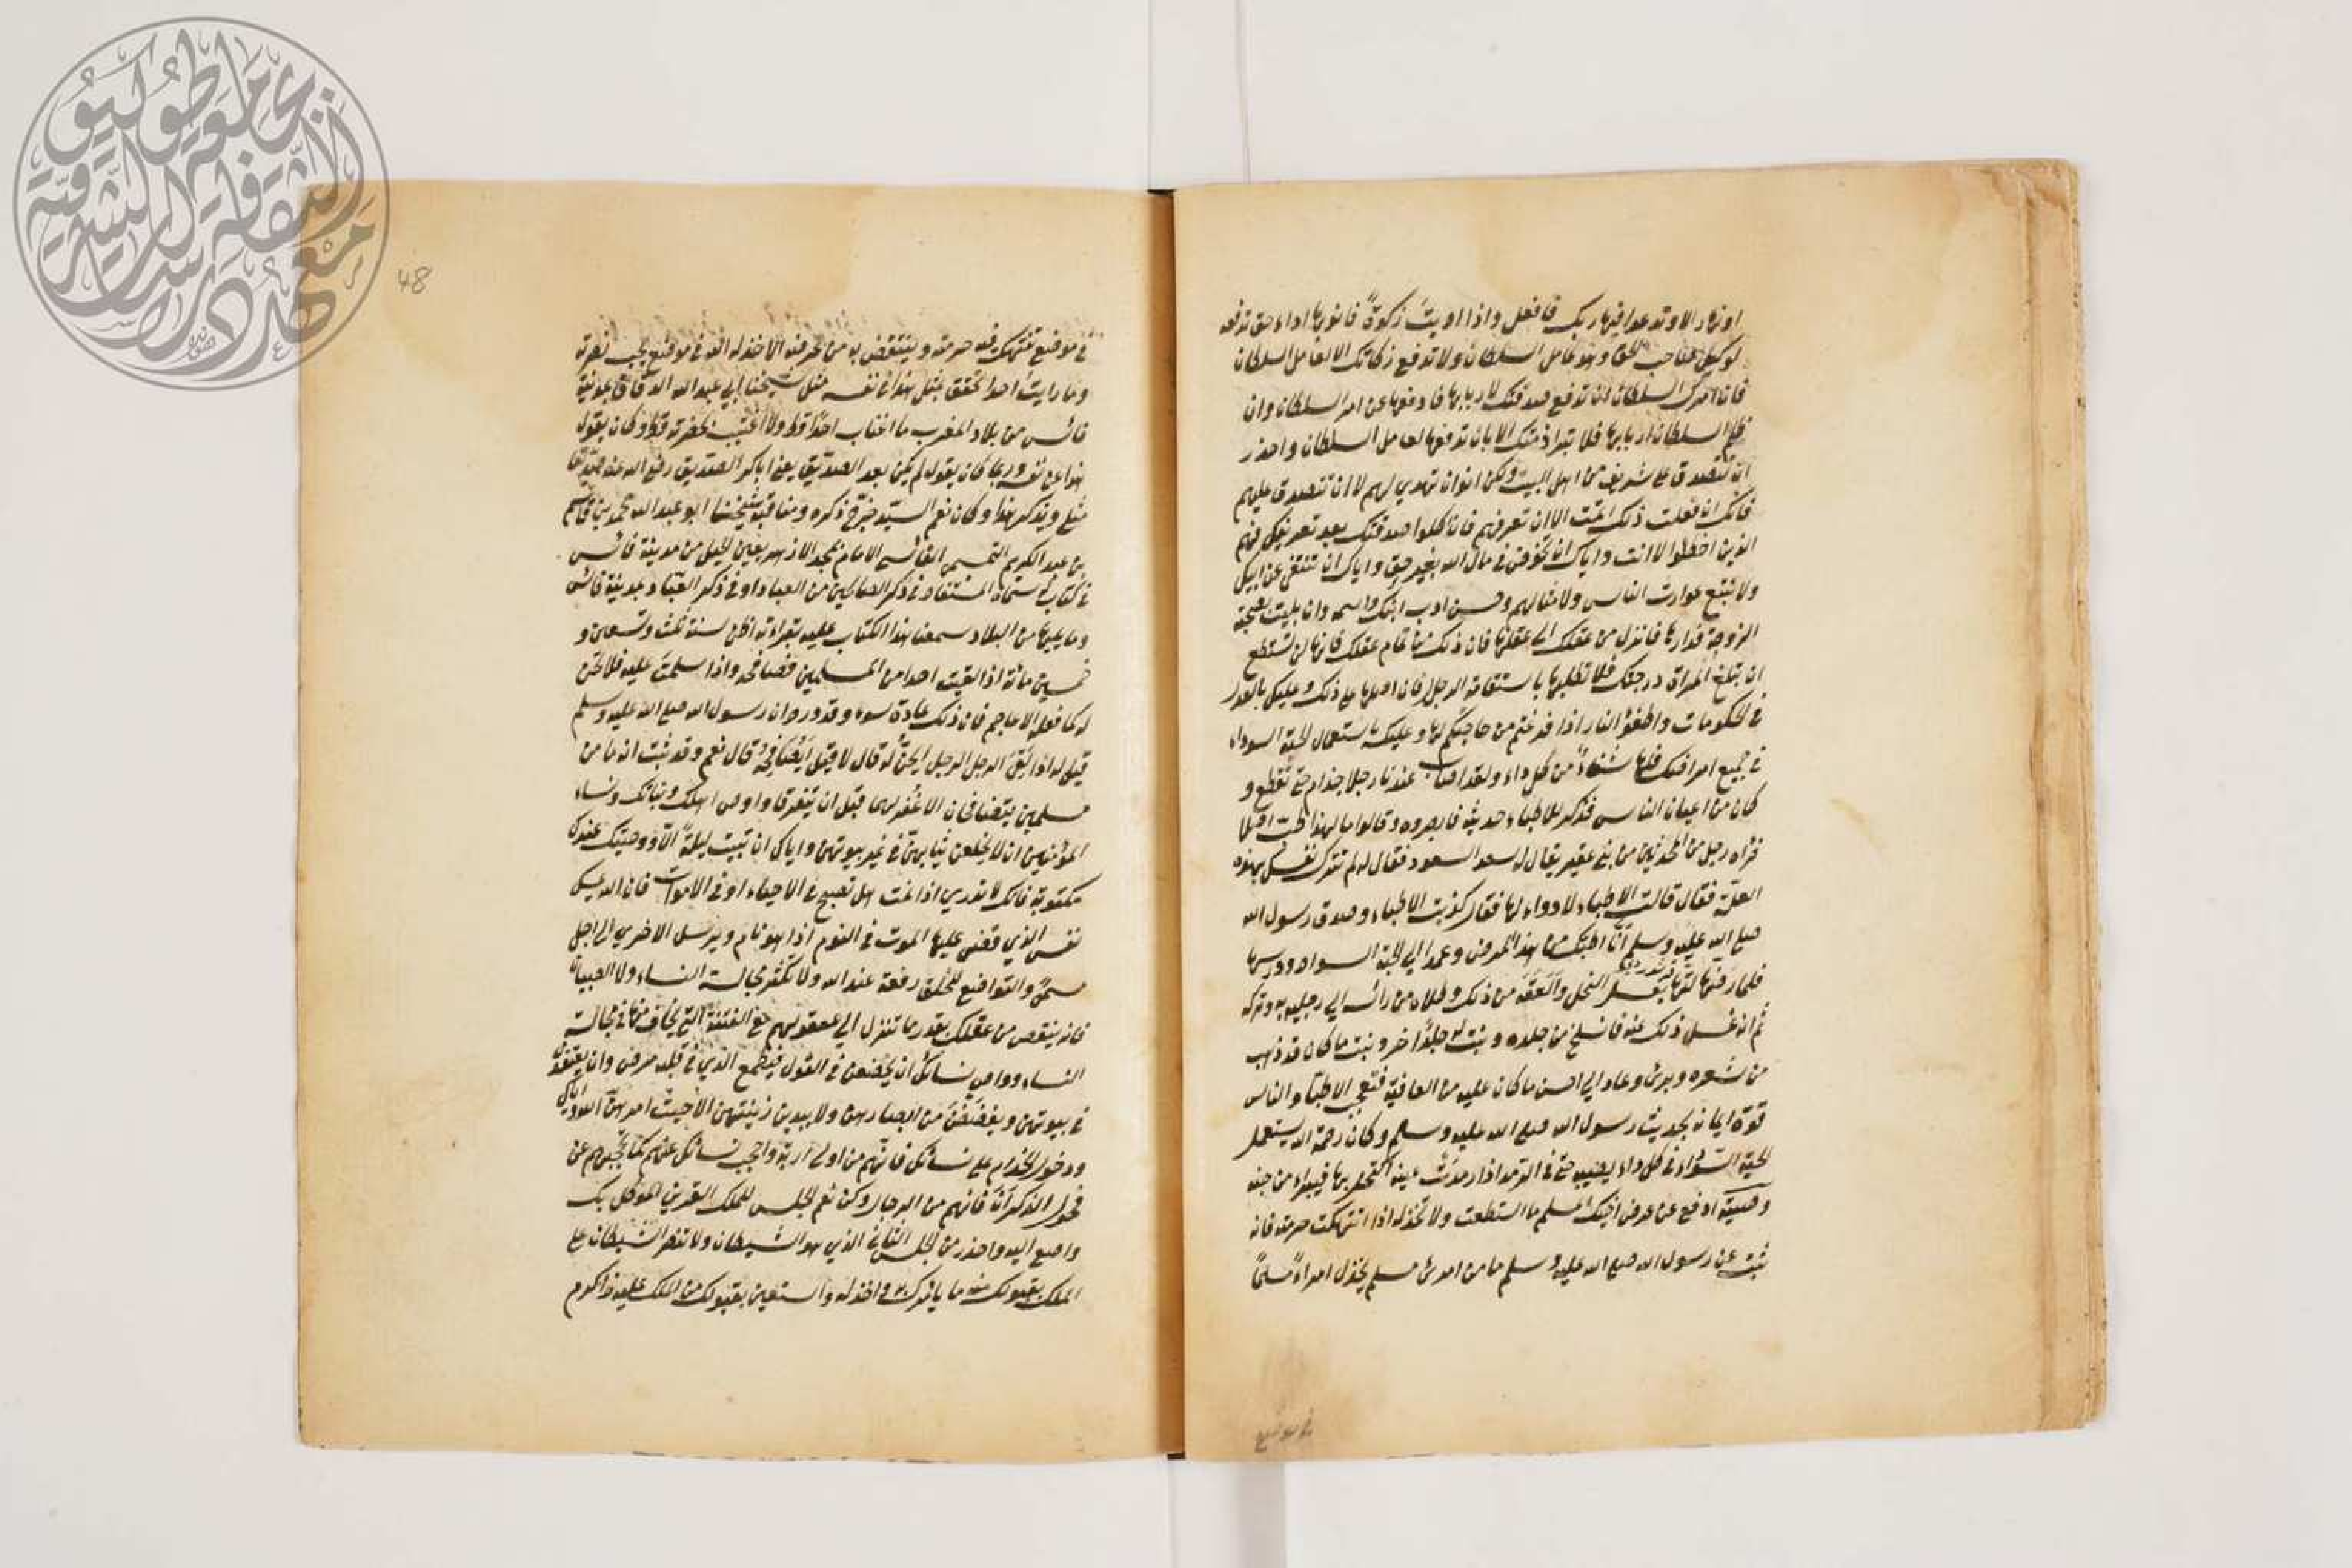 او نهار الا وتدعوا فيها ربك فافعل واذا اديت زكوة فانو بها اداء حق تدفعه
لوكيل صاحب الحق وهو عامل السلطان ولا تدفع زكاتك الا لعامل السلطان
فان امرك السلطان ان تدفع صدقتك لاربابها فادفعها عن امر السلطان وان
ظلم السلطان اربابها فلا تبرا ذمتك الا بان تدفعها لعامل السلطان واحذر
ان تتصدق على شريف من اهل البيت ولكن انو ان تهدي لهم لا ان تتصدق عليهم
فانك ان فعلت ذلك اثمت الا ان تعرفهم فان اكلوا صدقتك بعد تعريفك فهم
الذين اخطوا لا انت واياك ان تخوض في مال الله بغير حق واياك ان تنتفي عن ابيك
ولا تتبع عورات الناس ولا مثالبهم وحسن ادب ابنك واسمه وان بليت بصحبة
الزوجة فدارها فانزل من عقلك الى عقلها فان ذلك من تمام عقلك فانها لن تستطع
ان تبلغ المراة درجتك فلا تطلبها باستقامة الرجل فان اصلها على ذلك وعليك بالعدل
في الحكومات واطفؤ النار اذا فرغتم من حاجتكم بها وعليك باستعمال الحبة السوداء
في جميع امراضك فانها شفاء من كل داء ولقد اصاب عندنا رجلا جذام حتى تقطع و
كان من اعيان الناس فذكر للاطباء حديثه فابصروه وقالوا ما لهذا طب اصلا
فراه رجل من المحدثين من بني عفير يقال له سعد السعود فقال له لم تترك نفسك بهذه
العلة فقال قالت الاطباء لا دواء لها فقال كذبت الاطباء وصدق رسول الله
صلى الله عليه وسلم انا اطبك من هذا المرض وعمد الى الحبة السوداء ودرسها
فلما رضها لتها بعسل النحل والعقه من ذلك وطلاه من رأسه الى رجليه به وتركه
ثم انه غسل ذلك عنه فانسلخ من جلده ونبت له جلد اخر ونبت ما كان قد ذهب
من شعره وبرئ وعاد الى احسن ما كان عليه من العافية فتعجب الاطباء والناس
قوة ايمانه بحديث رسول الله صلى الله عليه وسلم وكان رحمه الله يستعمل
الحبة السوداء في كل داء يصيبه حتى في الرمد اذا رمدت عينه اكتحل بها فيبراء من حينه
وصية ادفع عن عرض اخيك المسلم ما استطعت ولا تخذله اذا انتهكت حرمته فانه
ثبت عن رسول الله صلى الله عليه وسلم ما من امرئ مسلم يخذل امراء مسلما
في موضع
48
في موضع تنتهك فيه حرمته وينتقض به من عرضه الا خذله الله في موضع يحب نصرته
وما رايت احدا تحقق بمثل هذا في نفسه مثل شيخنا ابي عبد الله الدقاق بمدينة
فاس من بلاد المغرب ما اغتاب احدا قط ولا اغتيب بحضرته قط وكان يقول
هذا عن نفسه وربما كان يقول لم يكن بعد الصديق يعني ابا بكر الصديق رضي الله عنه صديق
مثلي ويذكر هذا وكان نعم السيد خرج ذكره ومناقبه شيخنا ابو عبد الله محمد بن قاسم
بن عبد الكريم التميمي الفاسي الامام بمسجد الازهر بعين الخيل من مدينة فاس
في كتاب له سماه المستفاد في ذكر الصالحين من العباد او في ذكر العباد بمدينة فاس
وما يليها من البلاد سمعنا هذا الكتاب عليه بقراءته اظن سنة ثلث وتسعين و
خمسين مائة اذا لقيت احدا من المسلمين فصافحه واذا سلمت عليه فلا تحن
له كما فعله الاعاجم فان ذلك عادة سوء وقد ورد ان رسول الله صلى الله عليه وسلم
قيل له اذا لقي الرجل الرجل اينحن له قال لا قيل ايصافحه قال نعم وقد ثبت انه ما من
مسلمين يتصافحان الا غفر لهما قبل ان يتفرقا واوص اهلك وبناتك ونساء
المؤمنين ان لا يخلعن ثيابهن في غير بيوتهن واياك ان تبيت ليلة الا ووصيتك عندك
مكتوبة فانك لا تدري اذا نمت هل تصبح في الاحياء او في الاموات فان الله يمسك
نفس الذي قضى عليها الموت في النوم اذا هو نام ويرسل الاخرى الى اجل
مسمى والتواضع للخلق رفعة عند الله ولا تكثر مجالسة النساء ولا الصبيان
فانه ينقص من عقلك بقدر ما تنزل الى عقولهم مع الفتنة التي يخاف منها في مجالسة
النساء وواص نسائك ان لا يخضعن في القول فيطمع الذي في قلبه مرض وان يقعدن
في بيوتهن ويغضضن من ابصارهن ولا يبدين زينتهن الا حيث امرهن الله واياك
ودخول الخدام على نسائك فانهم من اولى الاربة واحجب نسائك عنهم كما تحجبهم عن
فحول الذكران فانهم من الرجال وكن نعم الجليس للملك القرين الموكل بك
واصغ اليه واحذر من الجليس الثاني الذي هو الشيطان ولا تنصر الشيطان على
الملك بقبولك منه ما يامرك به واخذله واستعن بقبولك من الملك عليه واكرم